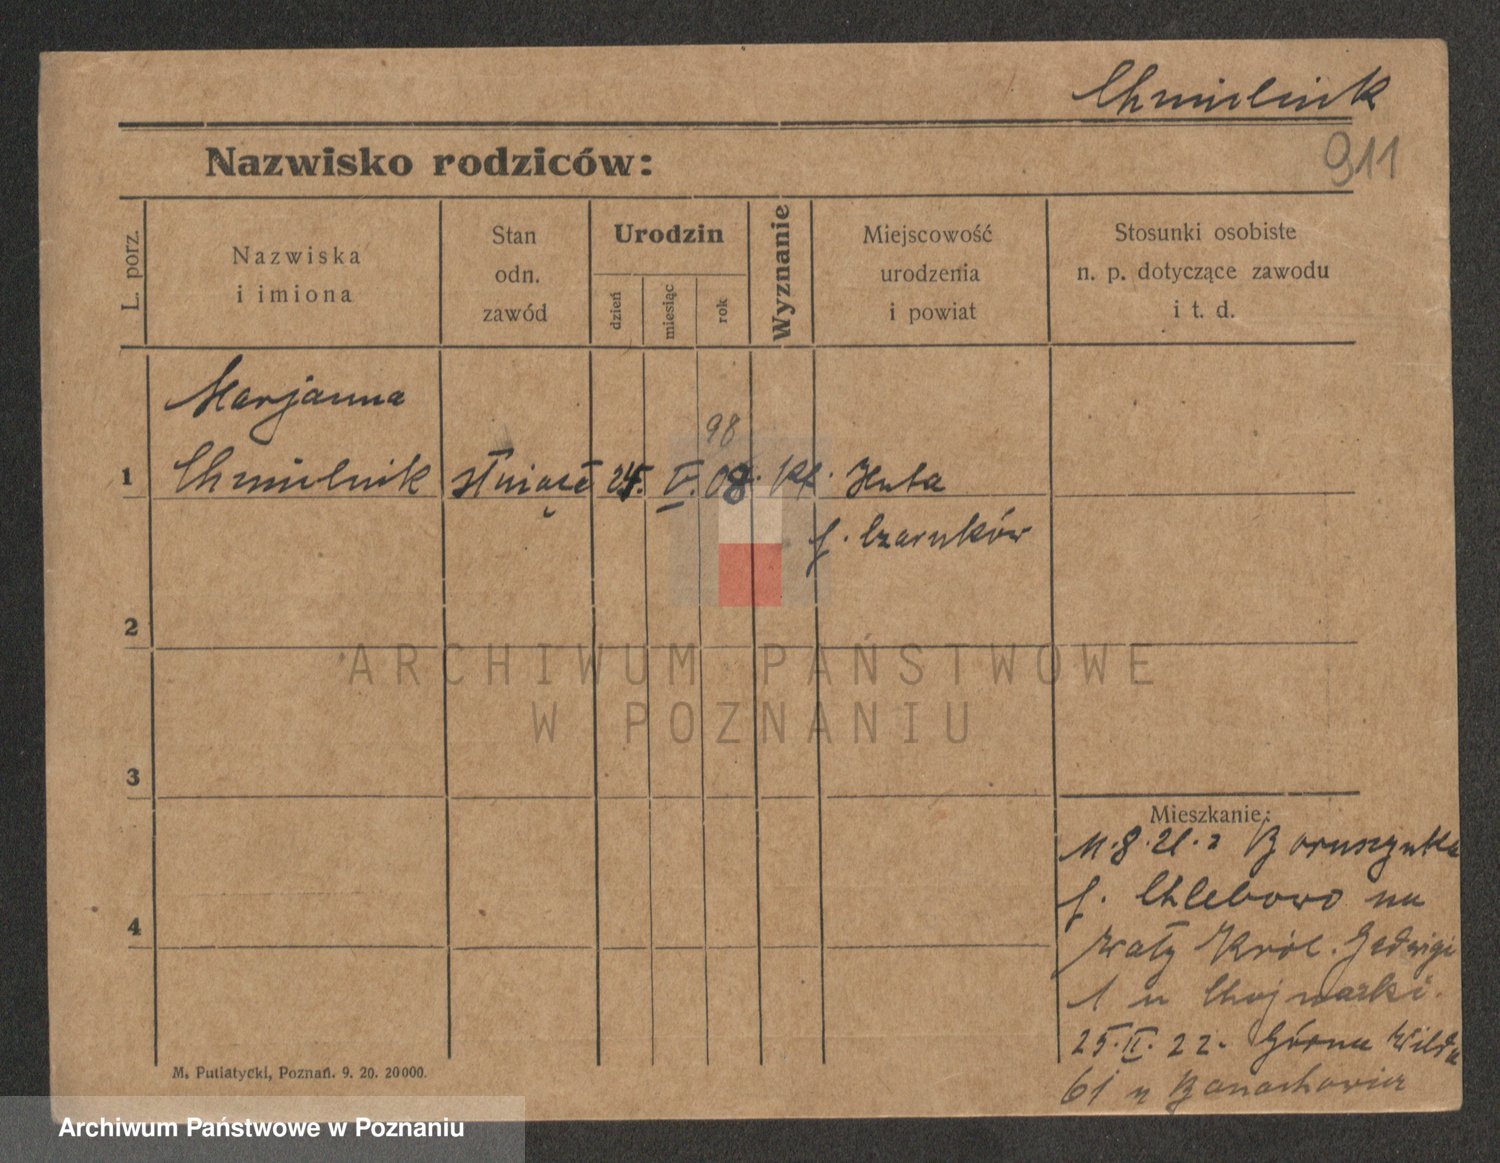 Chmielnik
911
Nazwisko rodziców:
L. porz.
Nazwiska
i imiona
Stan
odn.
zawód
Urodzin
dzień
miesiąc
rok
Wyznanie
Miejscowość
urodzenia
i powiat
Stosunki osobiste
n. p. dotyczące zawodu
i t. d.
Marjanna
98
1 Chmielnik 24. V. 08. kt. Huta
p. Czarnków
2
3
4
Mieszkanie:
11.8.21. z Boruszynka
p. Chlebowo na
Wały Król. Jadwigi
1 u Chojnacki.
25.II.22. Górna Wilda
61 u Banachowicz
M. Putiatycki, Poznań. 9. 20. 20000.
ARCHIWUM PAŃSTWOWE
W POZNANIU
Archiwum Państwowe w Poznaniu